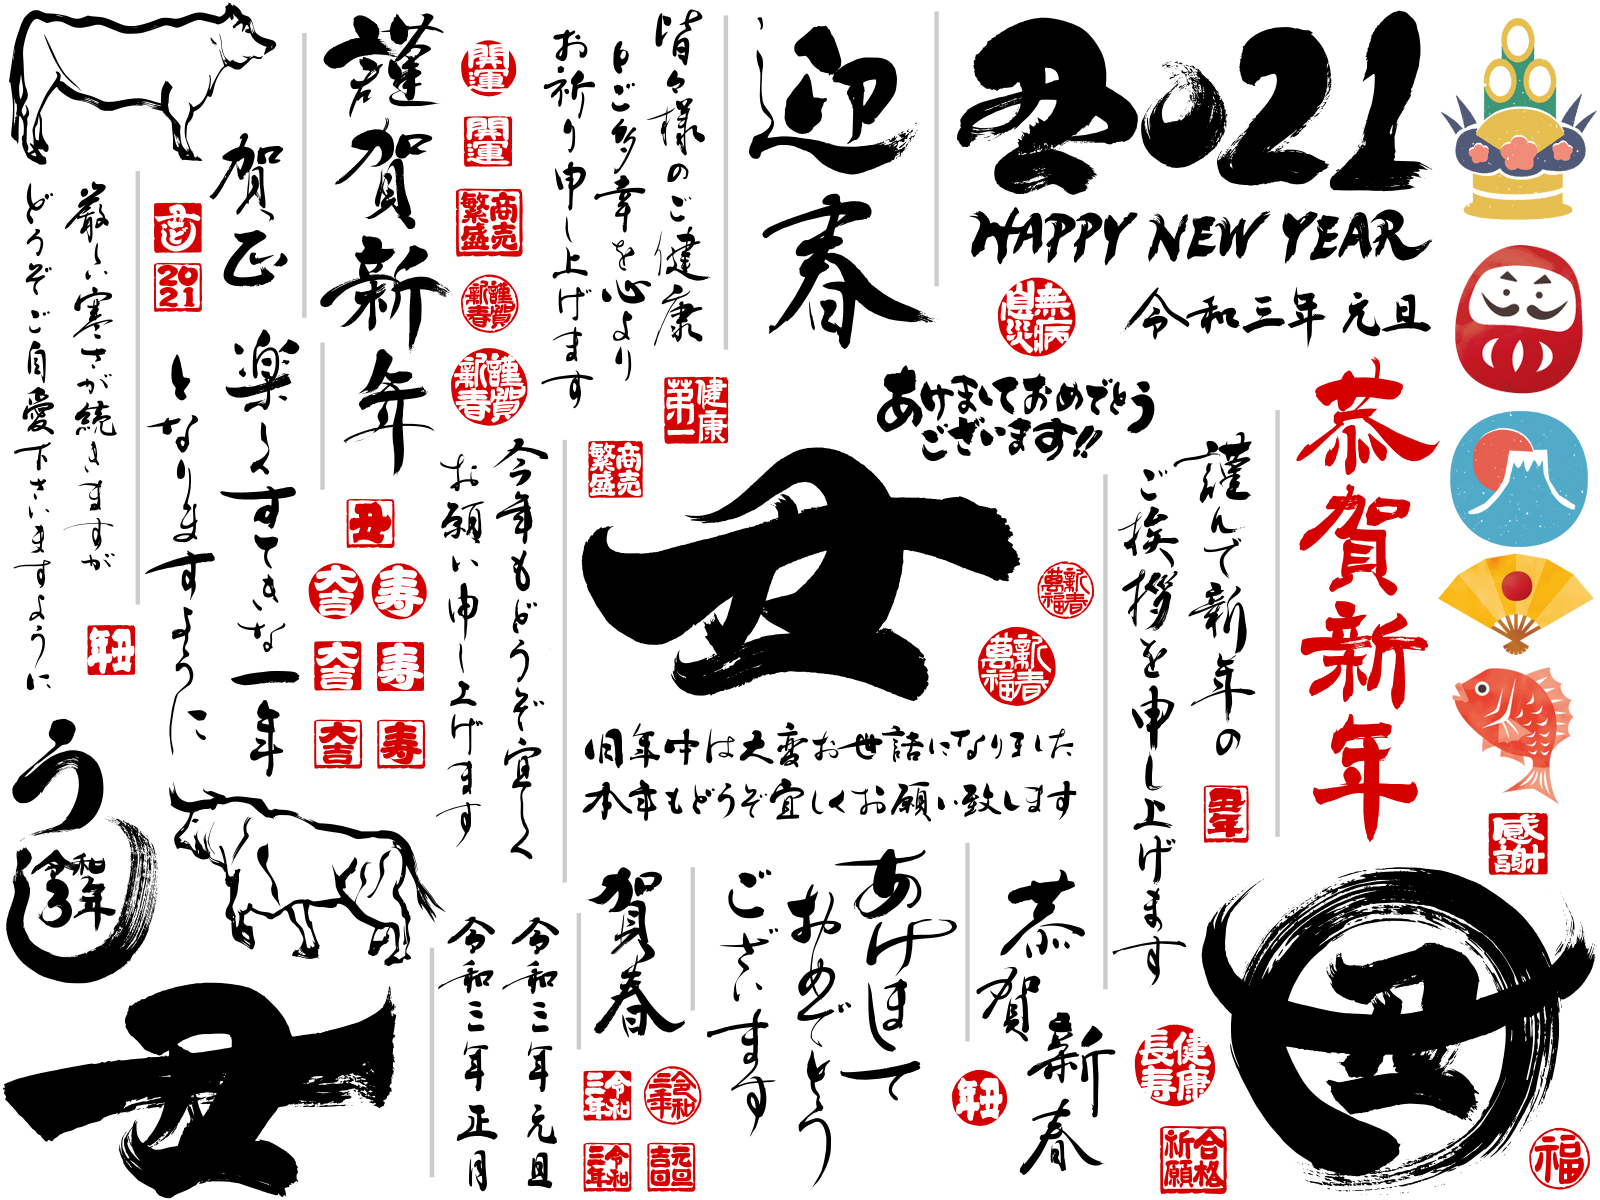 謹賀新年
賀正
厳しい寒さが続きますが
どうぞご自愛下さいますように
丑
2021
楽しくすてきな一年
となりますように
丑年
開運
開運
商売繁盛
謹賀新春
謹賀新春
皆々様のご健康
とご多幸を心より
お祈り申し上げます
健康第一
商売繁盛
迎春
丑2021
HAPPY NEW YEAR
無病息災
令和三年 元旦
あけましておめでとう
ございます!!
恭賀新年
謹んで新年の
ご挨拶を申し上げます
丑年
今年もどうぞ宜しく
お願い申し上げます
丑
大吉
寿
大吉
寿
大吉
寿
丑
新春萬福
新春萬福
旧年中は大変お世話になりました
本年もどうぞ宜しくお願い致します
うし
令和3年
丑
令和三年 元旦
令和三年 正月
賀春
令和三年
令和三年
令和三年
元旦吉日
あけまして
おめでとう
ございます
恭賀新春
丑年
健康長寿
合格祈願
感謝
丑
福